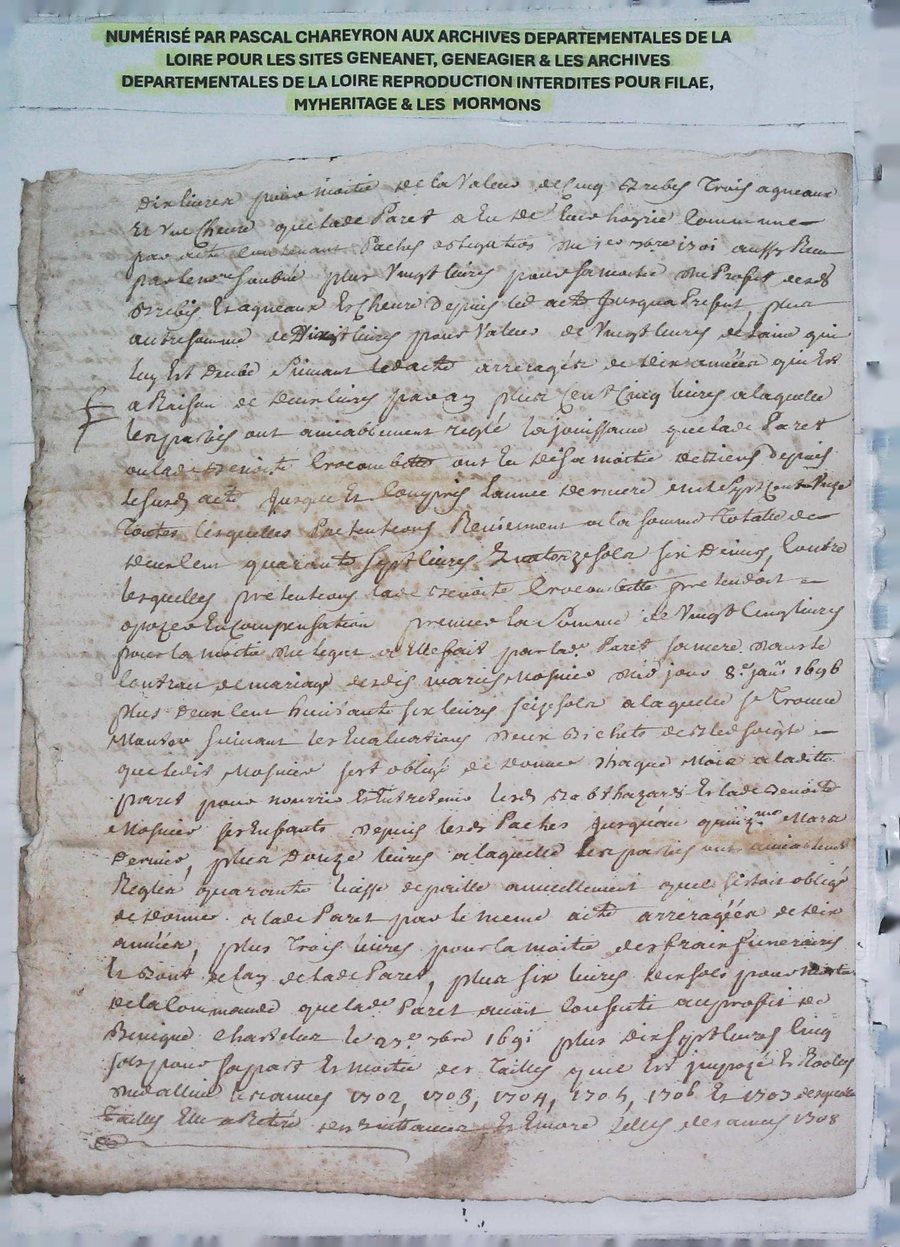 NUMÉRISÉ PAR PASCAL CHAREYRON AUX ARCHIVES DEPARTEMENTALES DE LA
LOIRE POUR LES SITES GENEANET, GENEAGIER & LES ARCHIVES
DEPARTEMENTALES DE LA LOIRE REPRODUCTION INTERDITES POUR FILAE,
MYHERITAGE & LES MORMONS
dix livres pour moitié de la valeur de cinq brebis trois agneaux
Et une chevre que lade Paret a eu de leur hoyrie commune
par acte contenant Paches obligation du 1701 aussy
par le plus vingt livres pour sa moitié du Profit desd
brebis Et agneaux Et chevre Depuis led acte Jusqua Present, plus
autre somme de livres pour valeur de vingt livres de laine qui
luy Est deube suivant led acte arreragés de dix années qui Est
a Raison de deux livres par an plus Cent Cinq livres a laquelle
les parties ont amiablement reglé la jouissance que lade Paret
ou lade Benoite ont Eu de sa moitié de biens depuis
le susd acte Jusque Et Compris Lannée derniere mil sept Cent
Toutes lesquelles Pretentions Reviennent a la somme Totalle de
deux Cent quarante sept livres quatorze sols six deniers, Contre
lesquelles pretentions lade Benoite pretendoit
opozer En Compensation premier la somme de vingt Cinq livres
pour la moitié du legat a Elle fait par lade Paret sa mere dans le
Contrat de mariage desdis mariés Mosnier du jour 8e janr 1696
plus deux Cent huictante six livres seize sols a laquelle se Trouve
Monter suivant les Evaluations deux bichets de bled soigle
que ledit Mosnier sest obligé de donner chaque Mois a ladite
paret pour nourrir Et Entretenir lesd Balthazard Et lade Benoite
Mosnier ses Enfants depuis lesd Paches Jusquau quinzme Mars
Dernier, plus Douze livres a laquelle les parties ont amiablement
Reglés quarante liasse de paille annuellement quel sestoit obligé
de donner a lade Paret par le meme acte arreragéés de dix
années, plus Trois livres pour la moitié des frais funeraires
Et de lade Paret, plus six livres dix sols pour
de la Commande que lade Paret avoit Consenti au proffit de
Benigne Chatelus le 23e 1691 plus dix sept livres Cinq
sols pour sa part Et moitié des Tailles quil Est imposé Es Roolles
les années 1702, 1703, 1704, 1705, 1706 Et 1707 desquelles
Tailles Elle a Retiré les quittances Et Encore Celles des années 1708